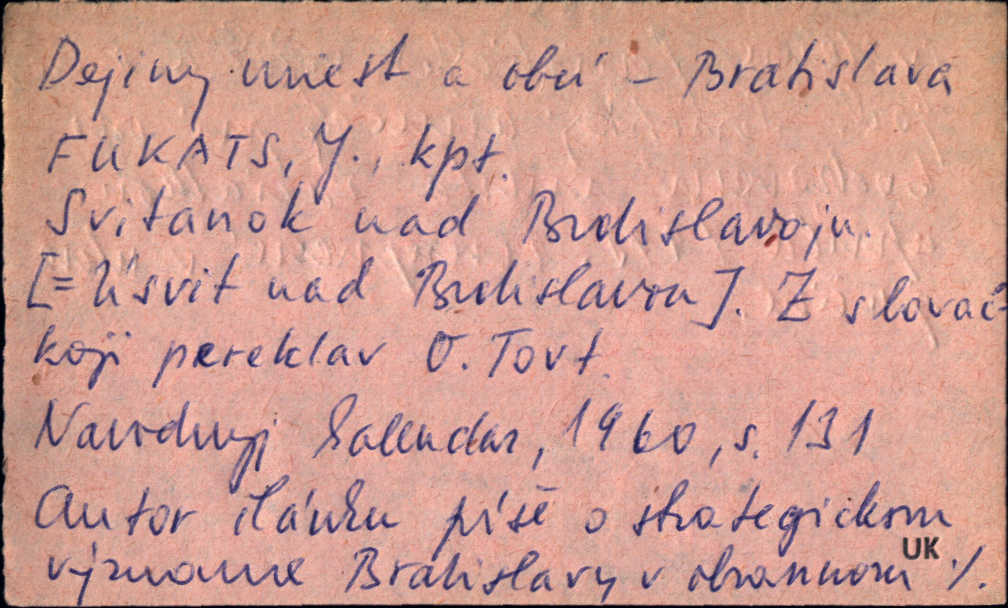 Dejiny miest a obcí - Bratislava
FUKATS, J., kpt.
Svitanok nad Bratislavoju.
[= Úsvit nad Bratislavou]. Z slovač-
koji pereklav O. Tovt.
Narodnyj kalendar, 1960, s. 131
Autor článku píše o strategickom
význame Bratislavy v obrannom ./.
UK